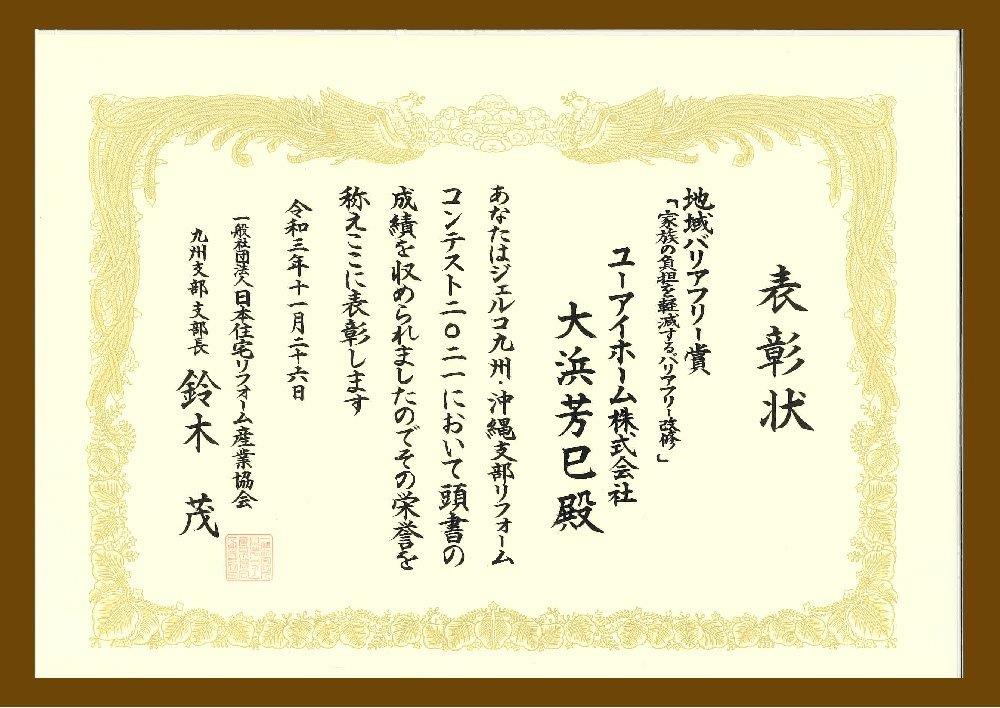 表彰状
地域バリアフリー賞
「家族の負担を軽減するバリアフリー改修」
ユーアイホーム株式会社
大浜芳巳殿
あなたはジェルコ九州・沖縄支部リフォーム
コンテスト二〇二一において頭書の
成績を収められましたのでその栄誉を
称えここに表彰します
令和三年十一月二十六日
一般社団法人日本住宅リフォーム産業協会
九州支部支部長 鈴木 茂